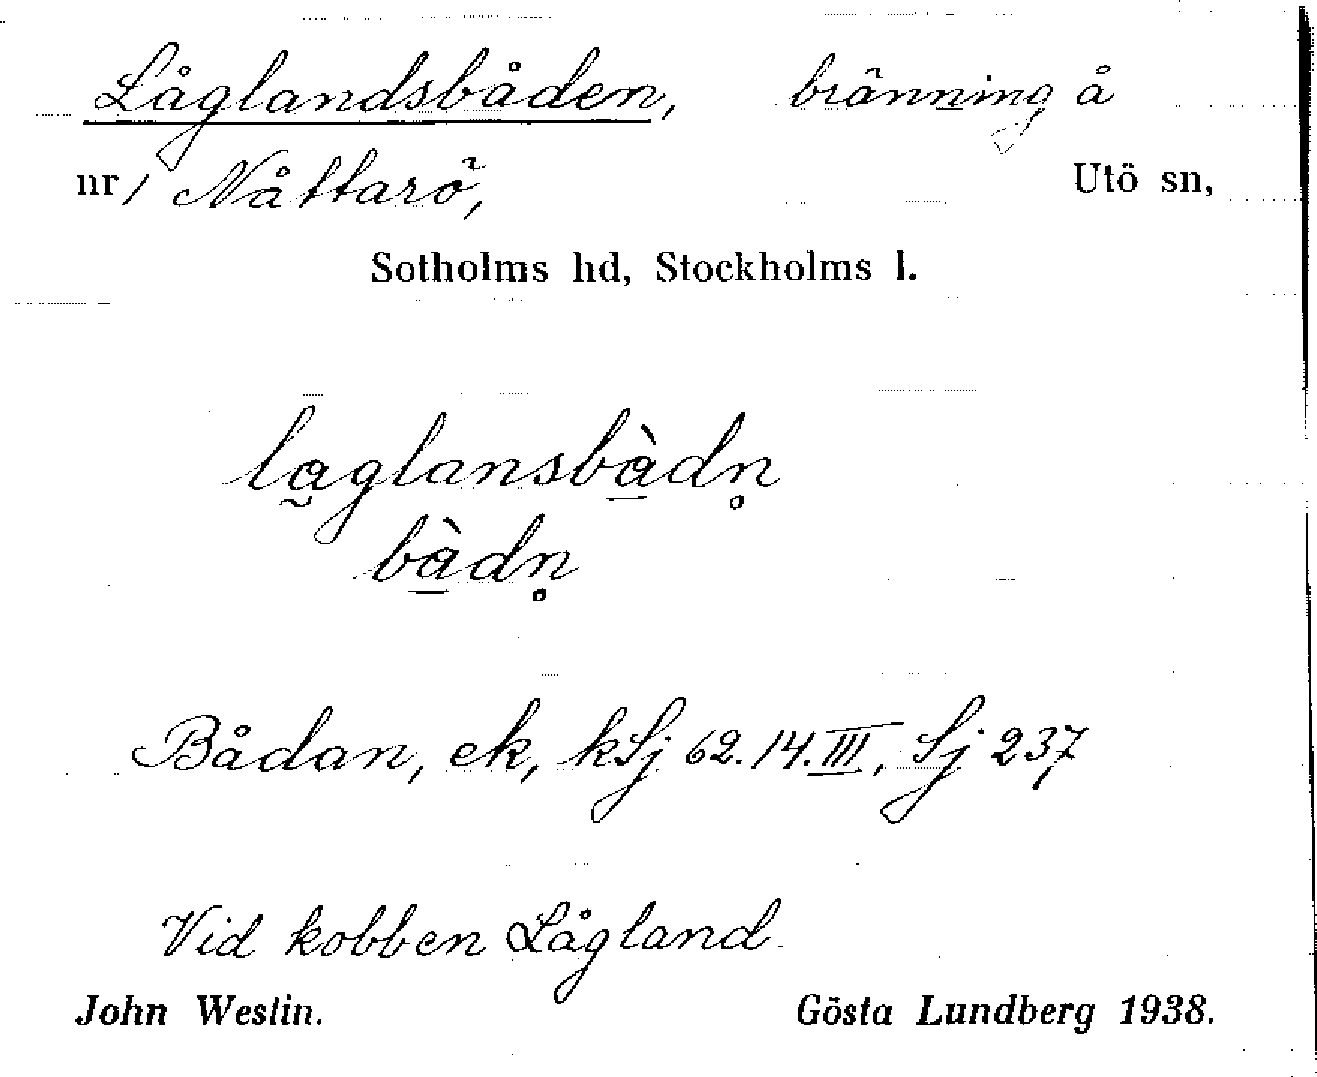 Låglandsbåden, bränning å
nr 1 Nåttarö, Utö sn,
Sotholms hd, Stockholms l.
la̰glansbà̱dn̥
bà̱dn̥
Bådan, ek, kSj 62.14.III, Sj 237
Vid kobben Lågland.
John Westin. Gösta Lundberg 1938.